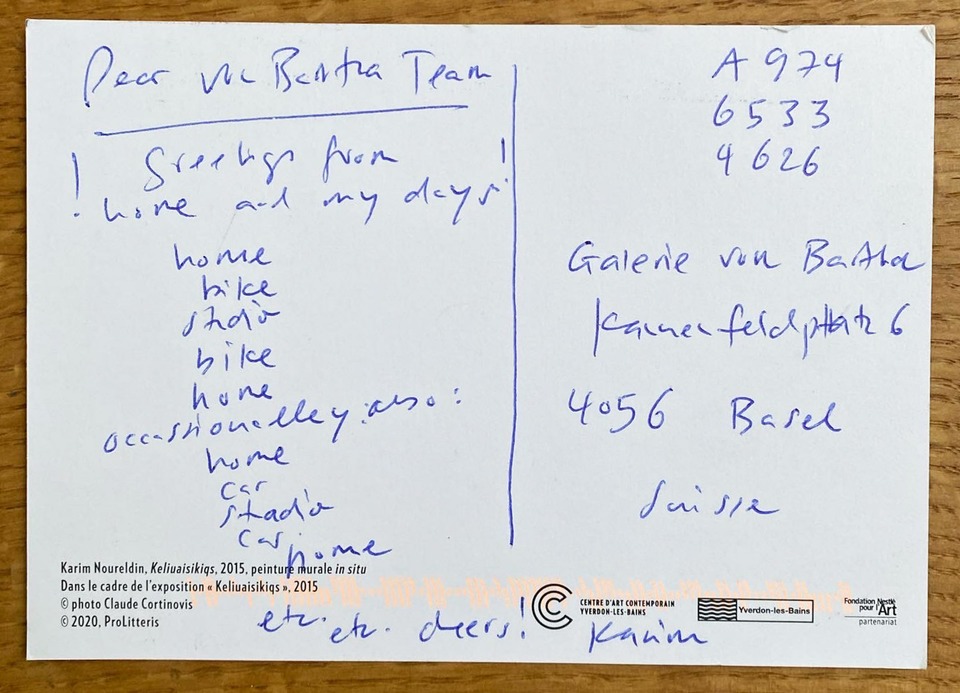 Dear von Bartha Team
! Greetings from !
home and my days
home
bike
studio
bike
home
occassionalley also:
home
car
studio
car
home
etc. etc. cheers! Karim
A 974
6533
4626
Galerie von Bartha
Kannenfeldplatz 6
4056 Basel
Suisse
Karim Noureldin, Keliuaisikiqs, 2015, peinture murale in situ
Dans le cadre de l'exposition « Keliuaisikiqs », 2015
© photo Claude Cortinovis
© 2020, ProLitteris
CENTRE D'ART CONTEMPORAIN
YVERDON-LES-BAINS
Yverdon-les-Bains
Fondation Nestlé
pour l'Art
partenariat